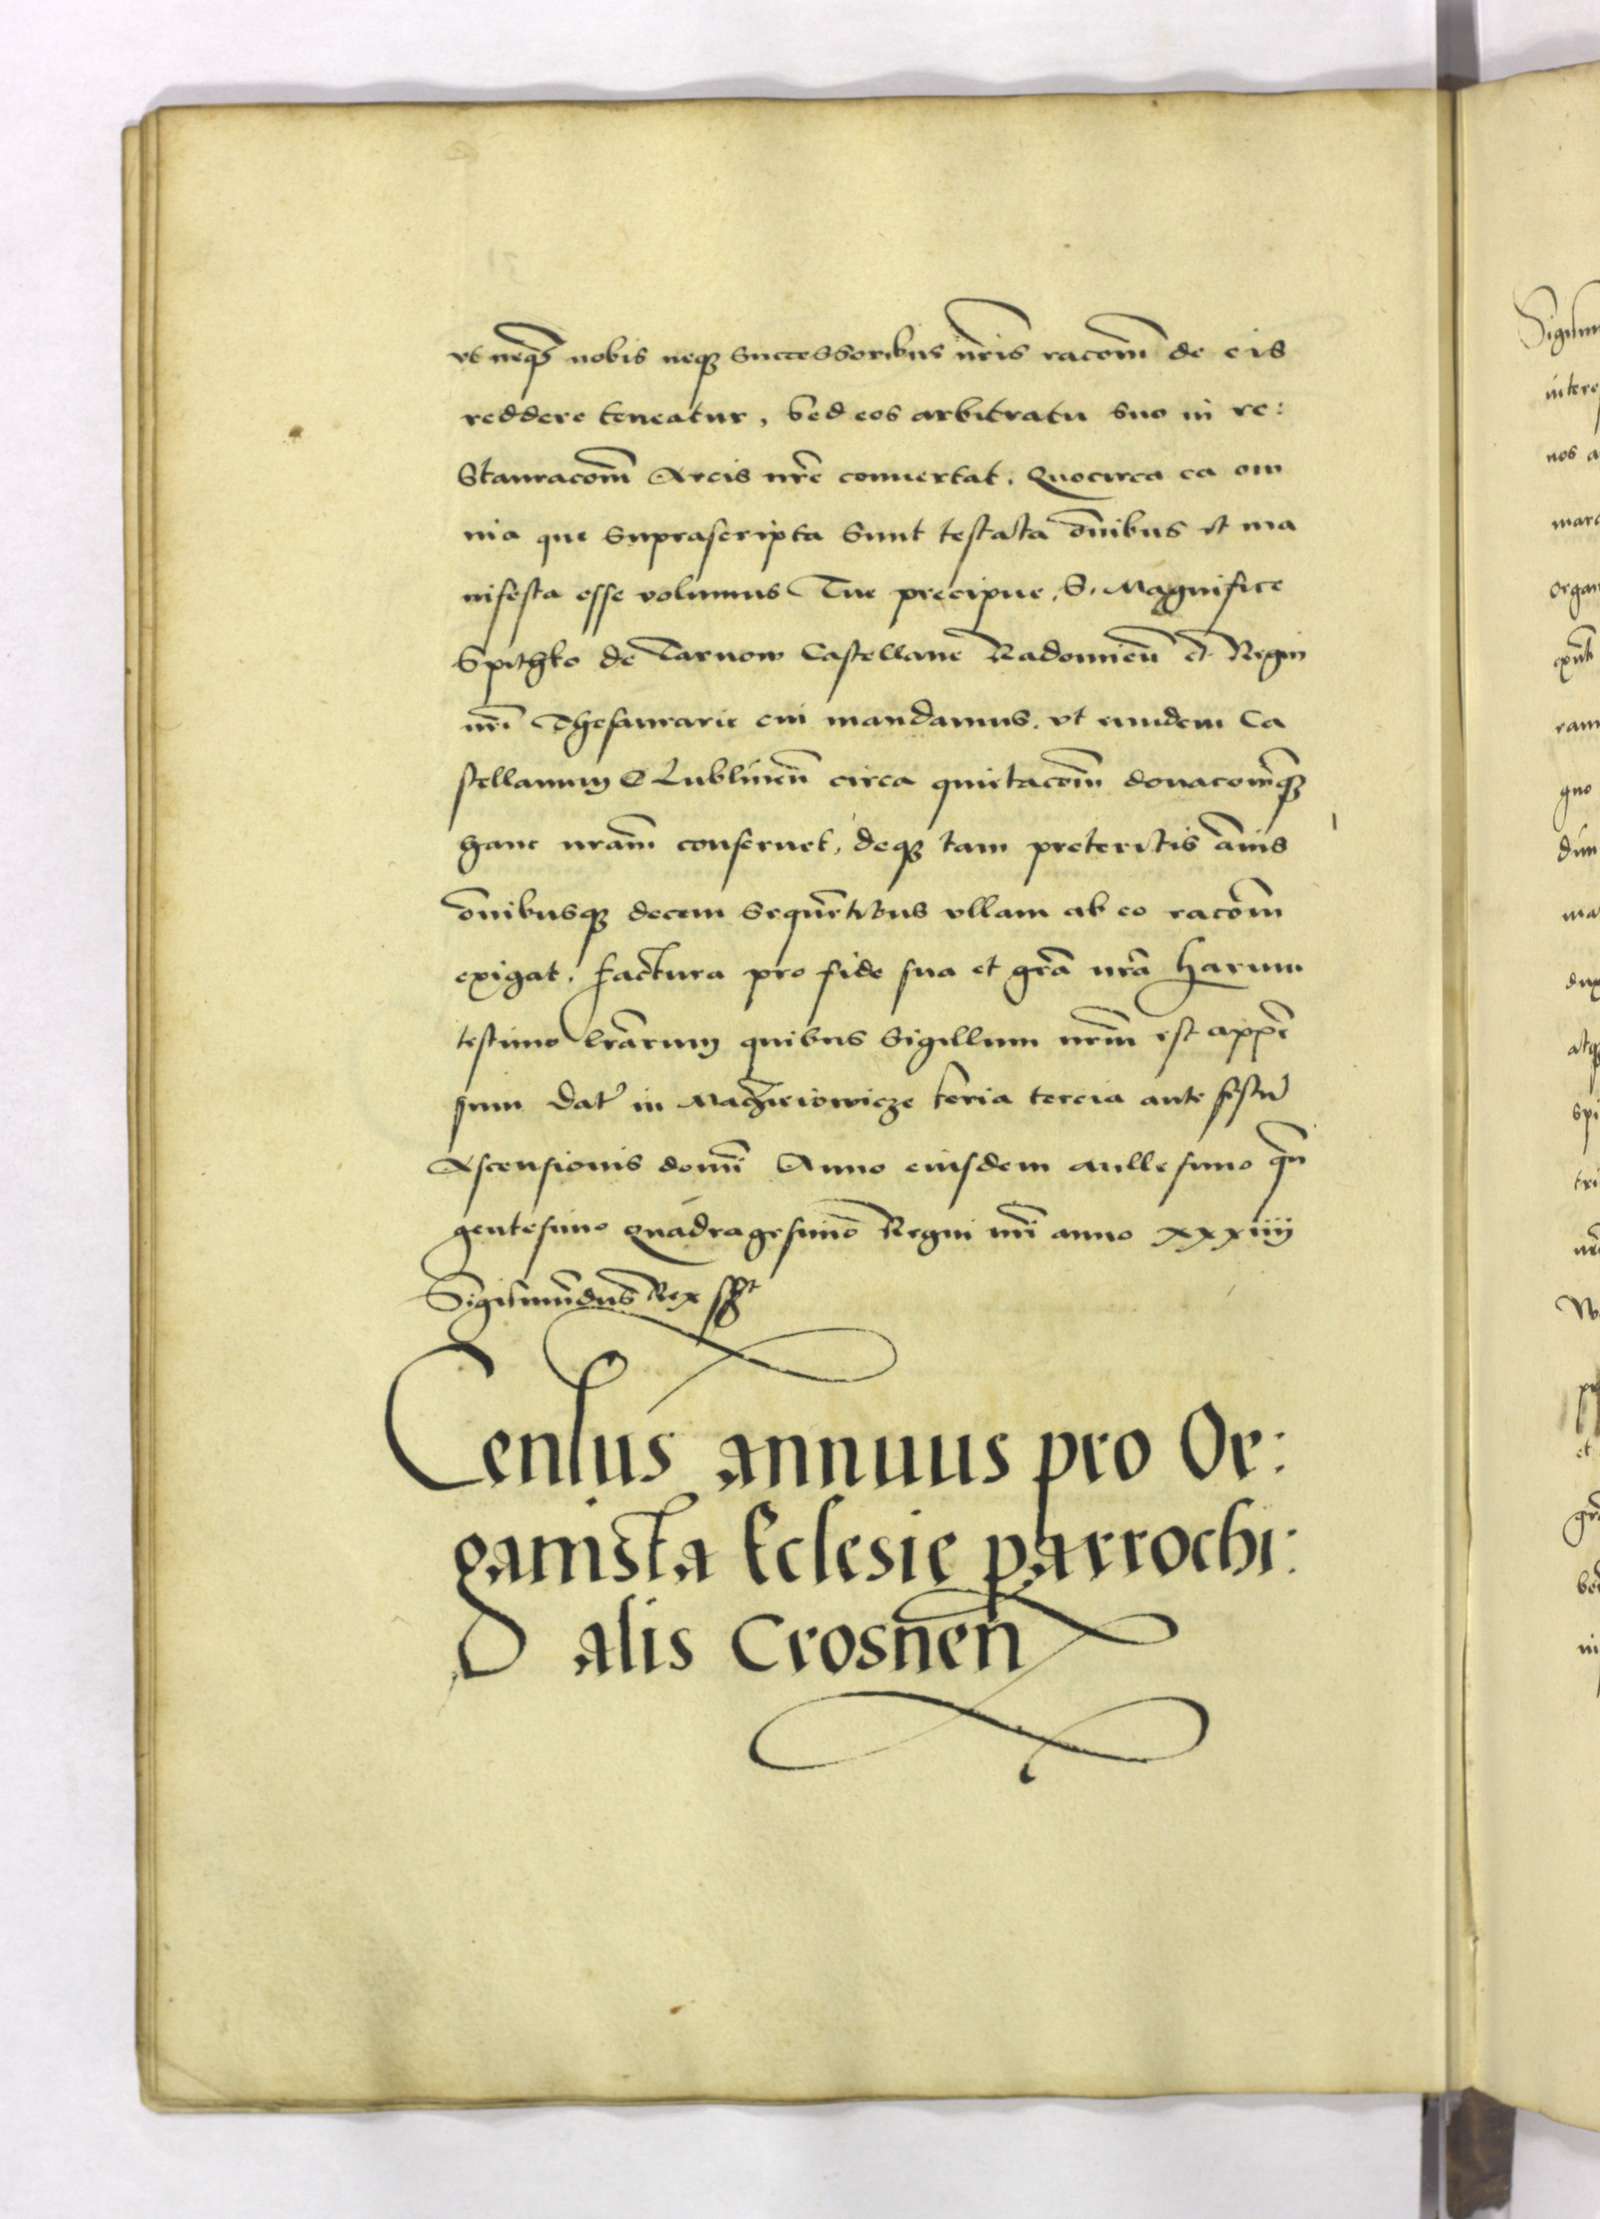 vt neqȝ nobis neqȝ successoribus nr̄is racom̄ de eis
reddere teneatur, Sed eos arbitratu suo in re:
Stauracom̄ Arcis nr̄e conuertat. Quocirca ea om
nia que suprascripta sunt testata om̄ibus et ma
nifesta esse volumus Tue precipue S. Magnifice
Spithko de Tarnow Castellane Radomien̄ et Regni
nr̄i Thesaurarie cui mandamus. vt eundem Ca
stellanum Lublinen̄ circa quietacom̄ donacom̄qȝ
hanc nram̄ conseruet, deqȝ tam preteritis annis
om̄ibusqȝ decem sequen̄tibus vllam ab eo racom̄
exigat. factura pro fide sua et gr̄a nr̄a Harum
testimo lr̄arum quibus Sigillum nrm̄ est appen̄
sum Dat̄ in Maczieiowicze feria tercia ante festū
Ascensionis domi̅ Anno eiusdem millesimo qui̅n
gentesimo quadragesimo Regni nr̄i anno xxxiiij
Sigismundus Rex sst
Census annuus pro Or:
ganista Eclesie parrochi:
alis Crosnen̄
Sigismu
intere
nos a
mara
organ
ram
gno
dum
ma
dux
atqȝ
spi
tri
nr̄
W
et
gr̄